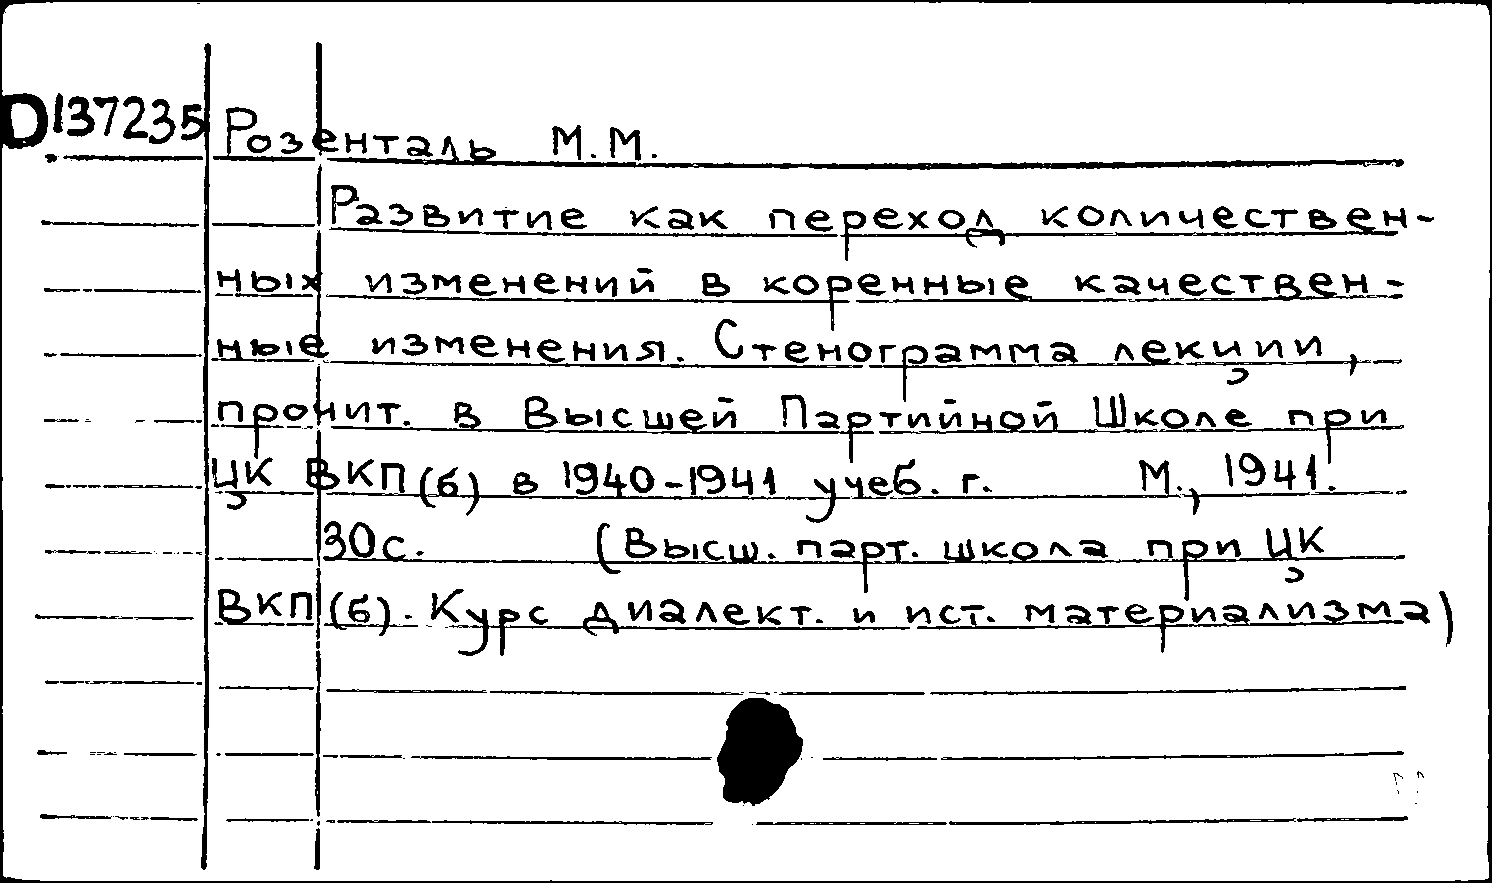 D137235 Розенталь М.М.
Развитие как переход количествен-
ных изменений в коренные качествен-
ные изменения. Стенограмма лекции,
прочит. в Высшей Партийной Школе при
ЦК ВКП(б) в 1940-1941 учеб. г. М., 1941.
30с. (Высш. парт. школа при ЦК
ВКП(б). Курс диалект. и ист. материализма)